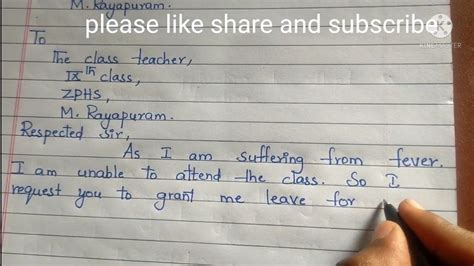 M. Rayapuram.
please like share and subscribe
To
The class teacher,
IXth class,
ZPHS,
M. Rayapuram.
Respected Sir,
As I am suffering from fever.
I am unable to attend the class. So I
request you to grant me leave for